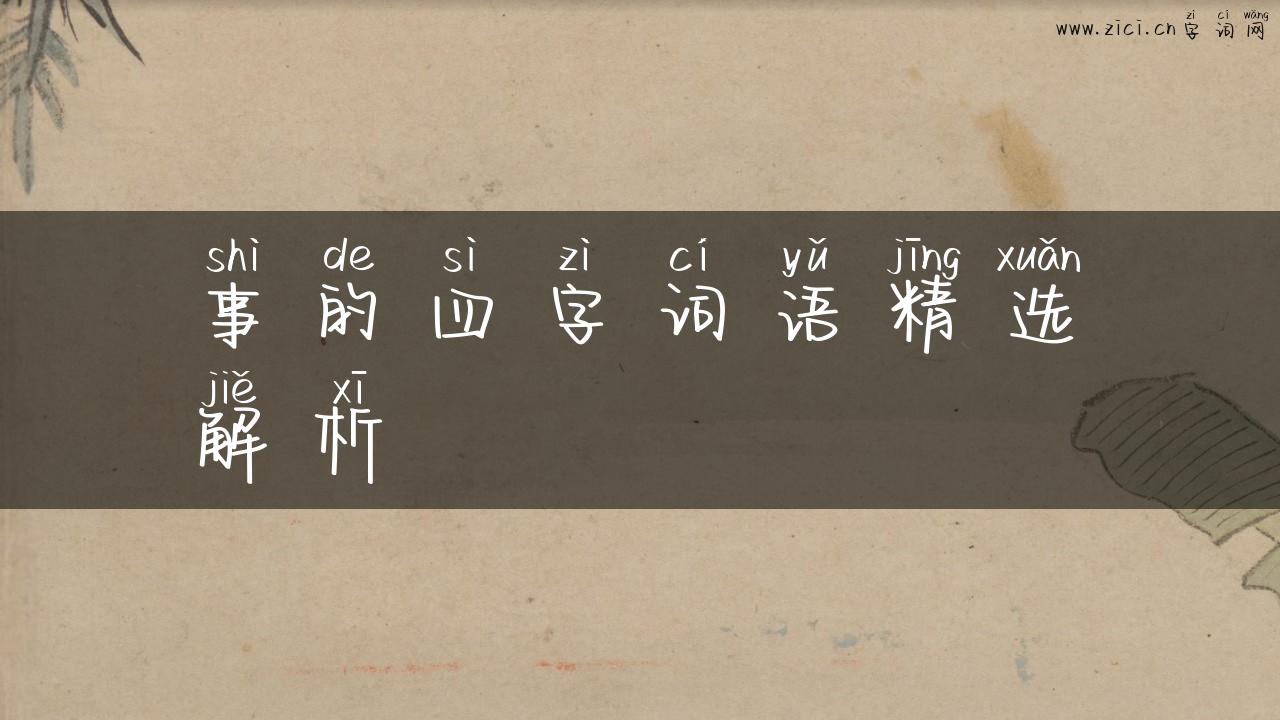 zì cí wǎng
www.zici.cn 字词网
shì de sì zì cí yǔ jīng xuǎn
事的四字词语精选
jiě xī
解析